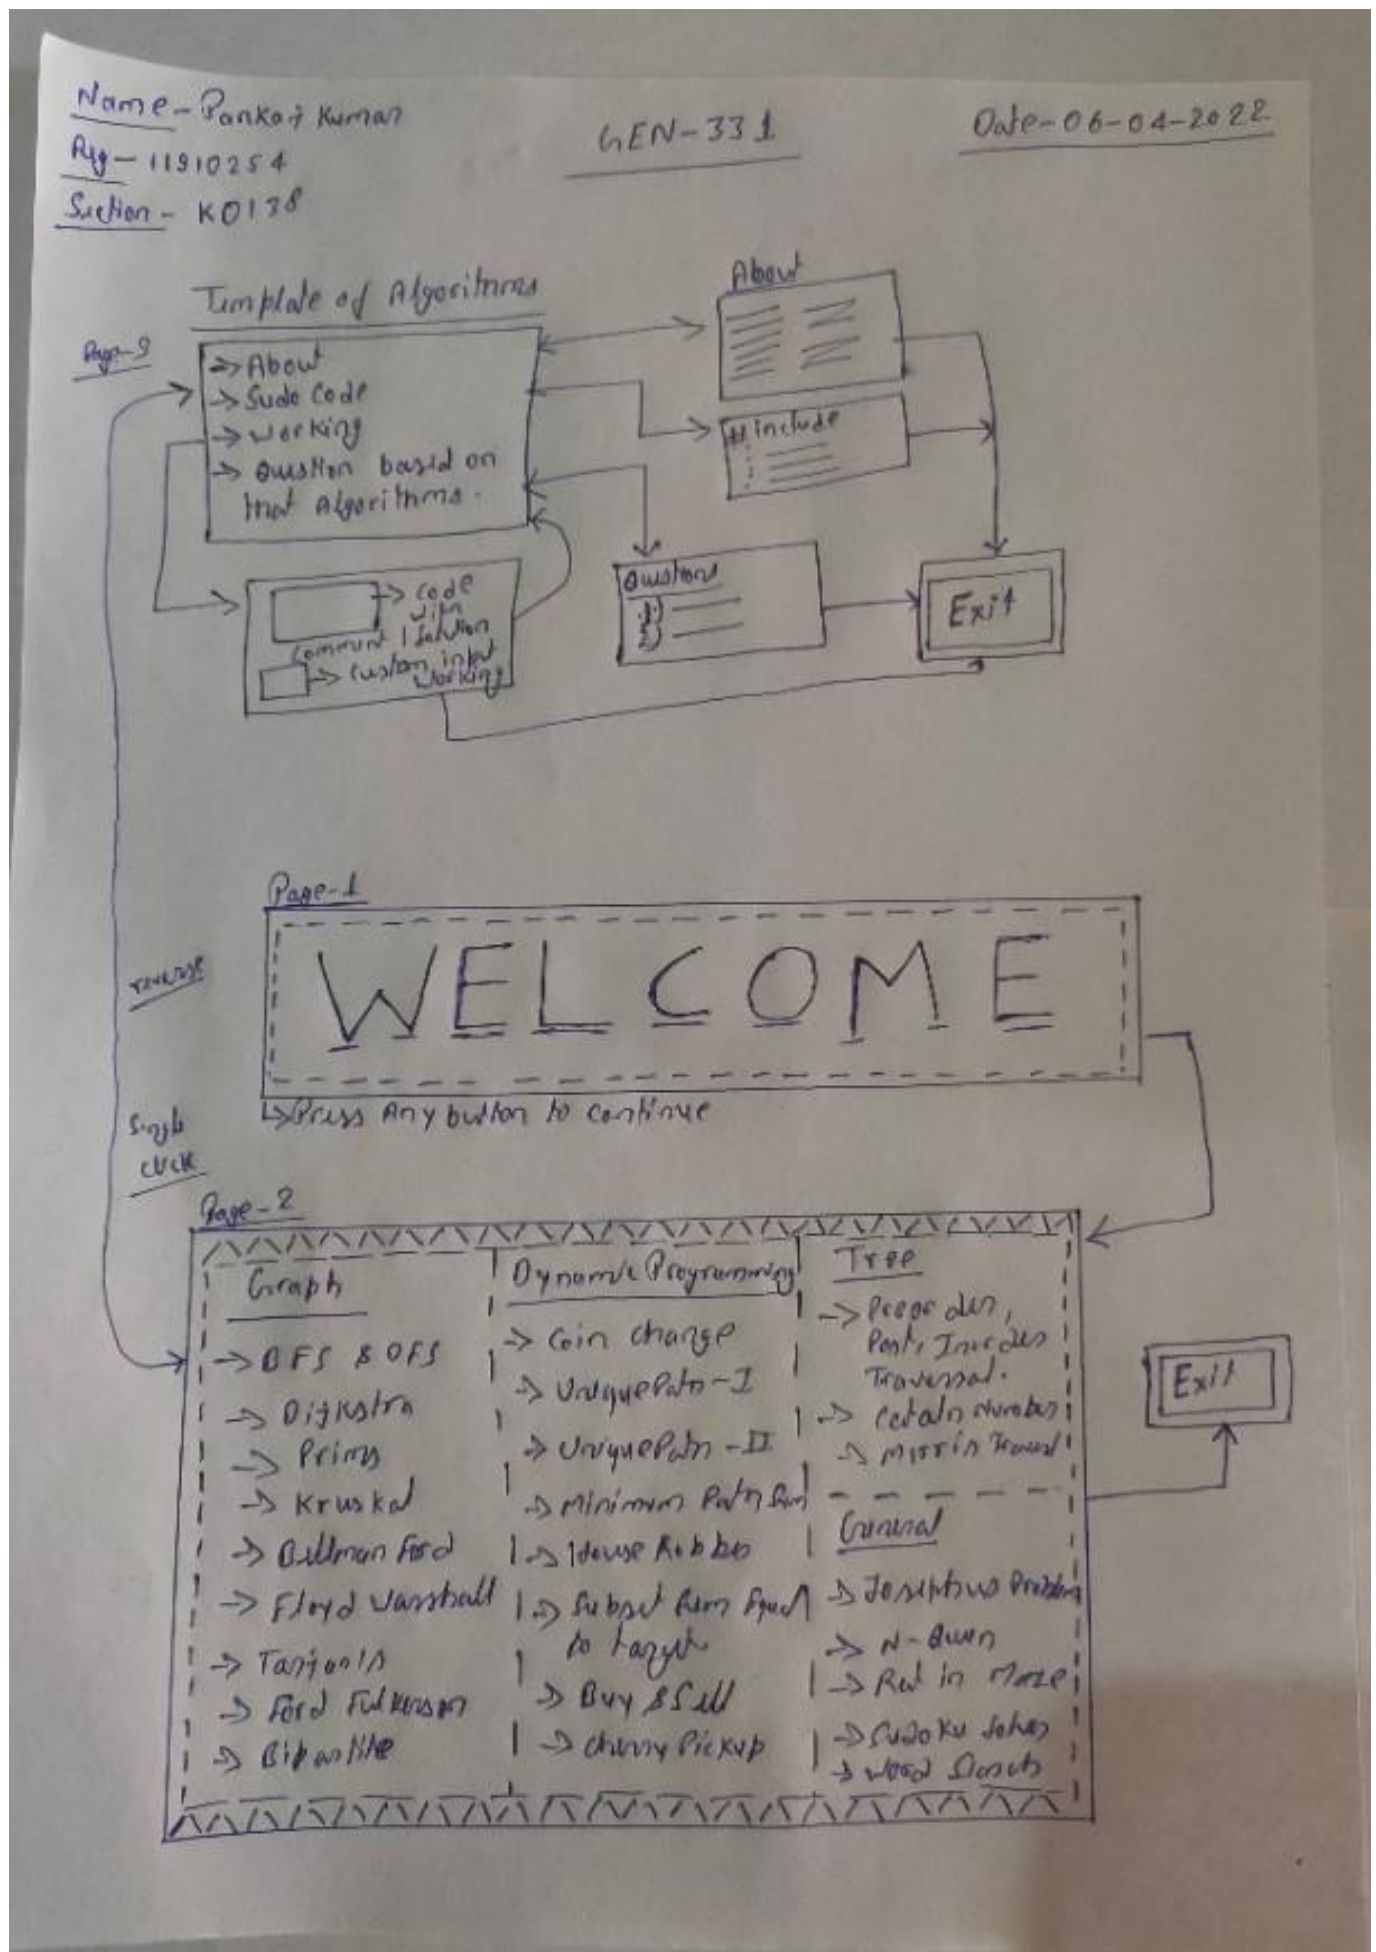 Name - Pankaj Kumar
Reg - 11910254
Section - KO138
GEN-331
Date-06-04-2022
Template of Algorithms
Page-3
→ About
→ Sudo Code
→ Working
→ Question based on
that Algorithms.
About
#include
Questions
1)
2)
Exit
→ Code
with
Comment / Solution
→ Custom input
Working
reverse
Single
click
Page-1
WELCOME
↳ Press Any button to continue
Page-2
Graph
→ BFS & DFS
→ Dijkstra
→ Prims
→ Kruskal
→ Bellman Ford
→ Floyd Warshall
→ Tarjan's
→ Ford Fulkerson
→ Bipartite
Dynamic Programming
→ Coin change
→ Unique Path-I
→ Unique Path-II
→ Minimum Path Sum
→ House Robber
→ Subset Sum Equal
to target
→ Buy & Sell
→ Cherry Pickup
Tree
→ Preorder,
Post, Inorder
Traversal.
→ Cataln Number
→ Morris
General
→ Josephus Problem
→ N-Queen
→ Rat in Maze
→ Sudoku Solver
→ Word Search
Exit